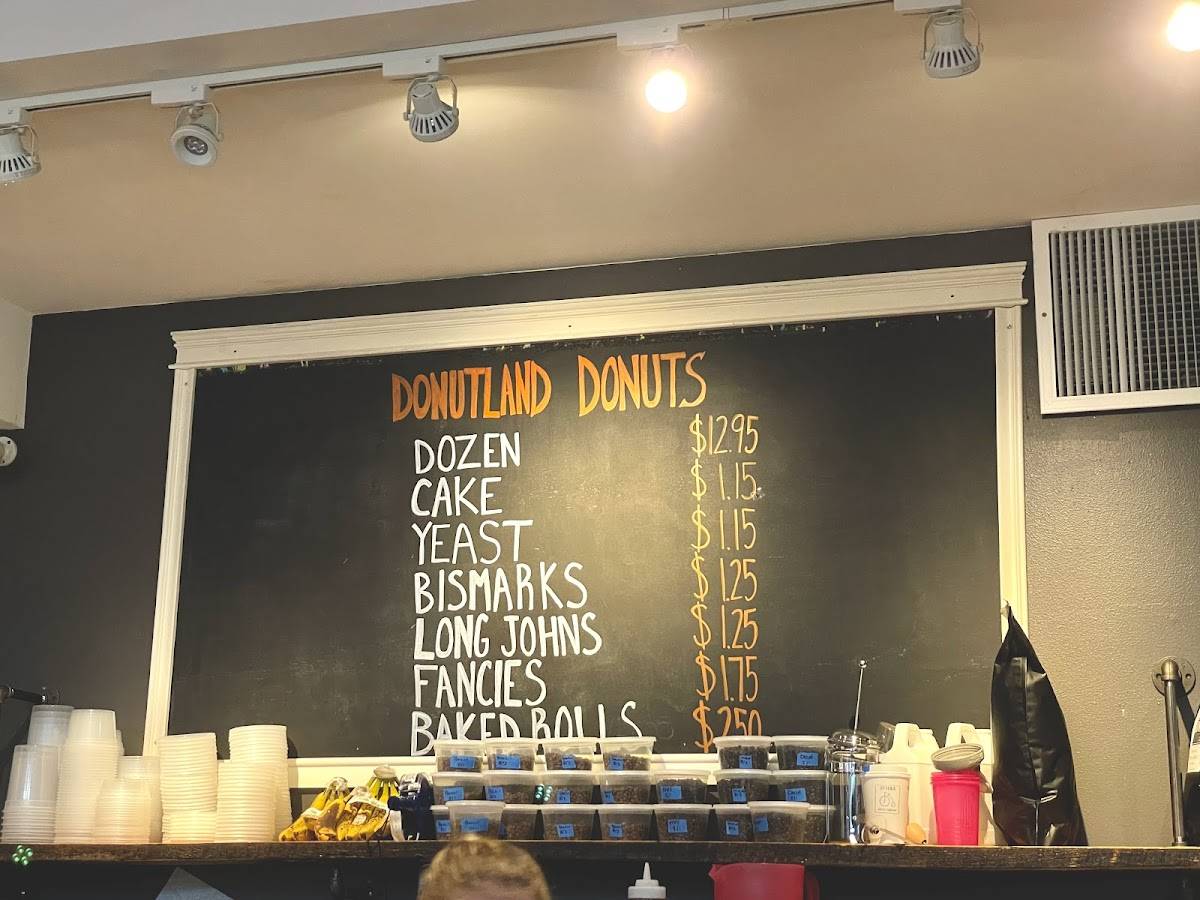 DONUTLAND DONUTS
DOZEN $12.95
CAKE $1.15
YEAST $1.15
BISMARKS $1.25
LONG JOHNS $1.25
FANCIES $1.75
BAKED ROLLS $2.50